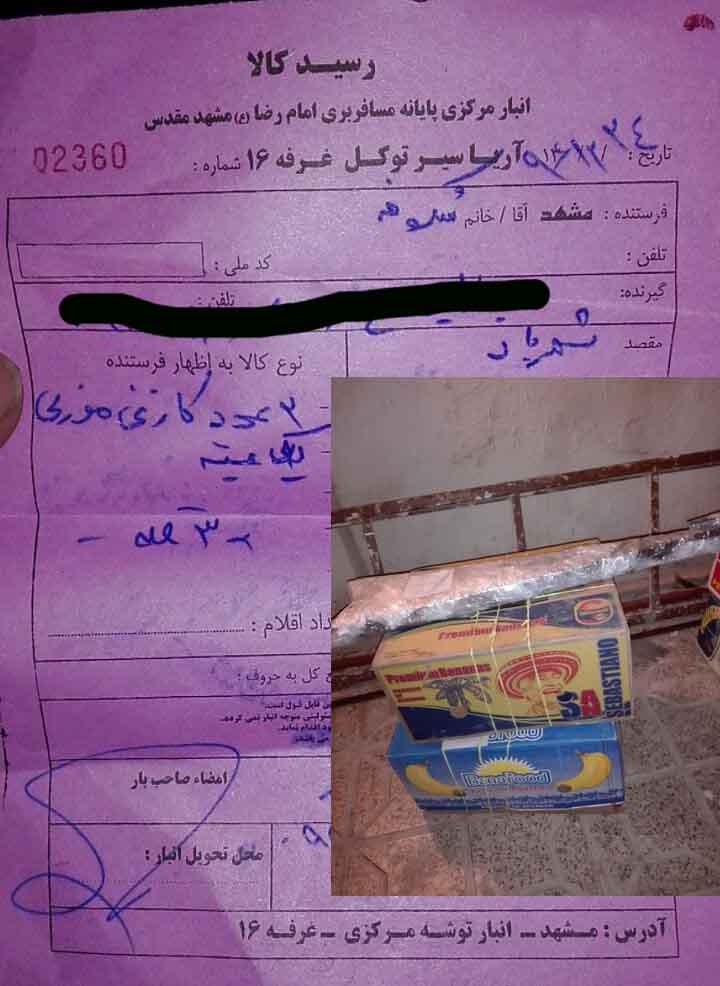 رسید کالا
انبار مرکزی پایانه مسافربری امام رضا (ع) مشهد مقدس
تاریخ :
آریا سیر توکل غرفه ۱۶ شماره : 02360
فرستنده : مشهد آقا / خانم
تلفن :
کد ملی :
گیرنده:
تلفن :
مقصد
شهریار
نوع کالا به اظهار فرستنده
۳ عدد کارتن موزی
۳
داد اقلام :
کل به حروف :
امضاء صاحب بار
محل تحویل انبار :
آدرس : مشهد - انبار توشه مرکزی - غرفه ۱۶
Premium Bananas
Premium Bananas
SEBASTIANO